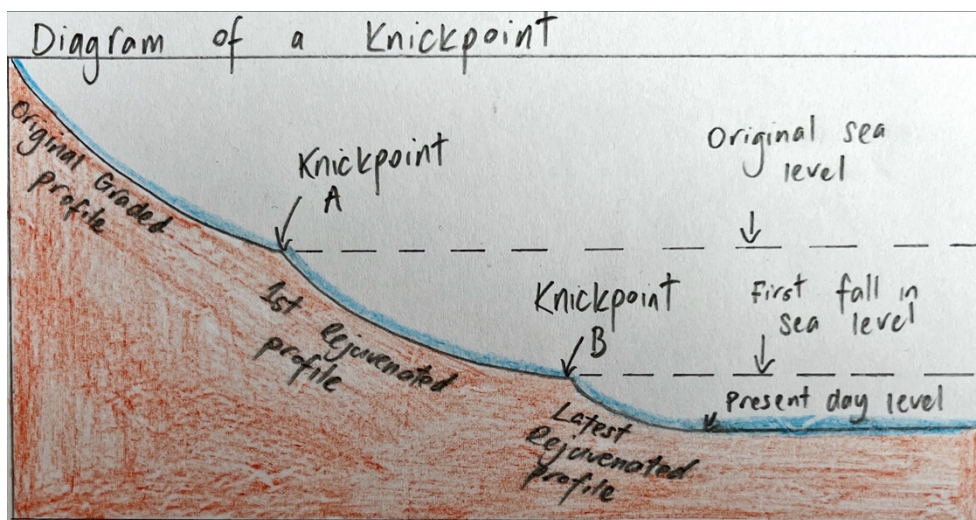 Diagram of a Knickpoint
Original Graded
profile
Knickpoint
A
Original sea
level
1st Rejuvenated
profile
Knickpoint
B
First fall in
sea level
Latest
Rejuvenated
profile
Present day level